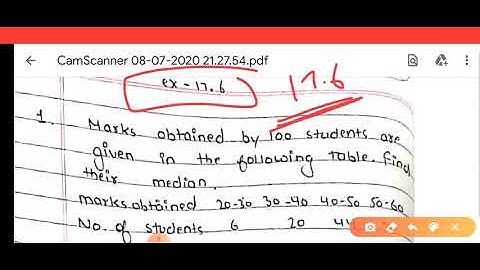 CamScanner 08-07-2020 21.27.54.pdf
ex - 17.6
17.6
1. Marks obtained by 100 students are
given in the following table. Find
their median.
marks obtained 20-30 30-40 40-50 50-60
No. of students 6 20